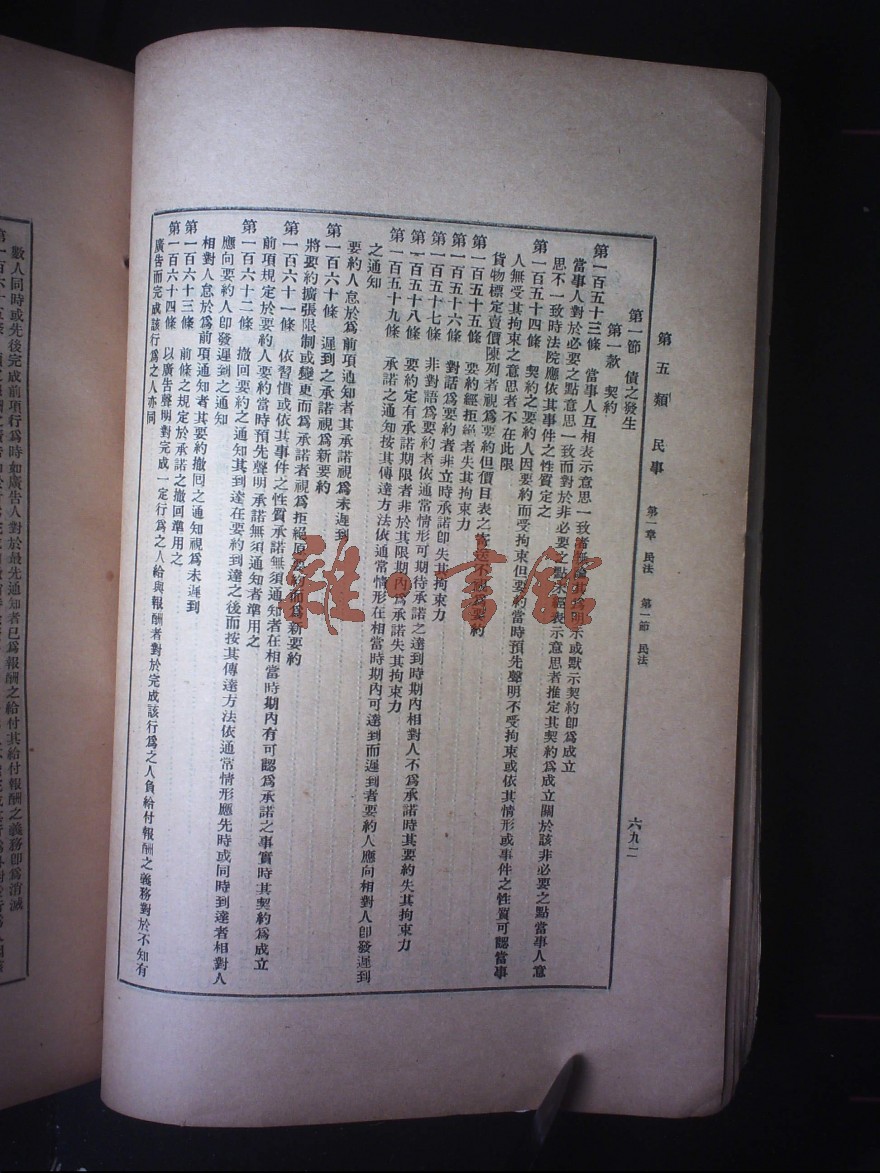 第五類　民事　第一章　民法　第一節　民法　六九二
第一節　債之發生
第一款　契約
第一百五十三條　當事人互相表示意思一致者無論其爲明示或默示契約卽爲成立
當事人對於必要之點意思一致而對於非必要之點未經表示意思者推定其契約爲成立關於該非必要之點當事人意
思不一致時法院應依其事件之性質定之
第一百五十四條　契約之要約人因要約而受拘束但要約當時預先聲明不受拘束或依其情形或事件之性質可認當事
人無受其拘束之意思者不在此限
貨物標定賣價陳列者視爲要約但價目表之寄送不視爲要約
第一百五十五條　要約經拒絕者失其拘束力
第一百五十六條　對話爲要約者非立時承諾卽失其拘束力
第一百五十七條　非對話爲要約者依通常情形可期待承諾之達到時期內相對人不爲承諾時其要約失其拘束力
第一百五十八條　要約定有承諾期限者非於其限期內爲承諾失其拘束力
第一百五十九條　承諾之通知按其傳達方法依通常情形在相當時期內可達到而遲到者要約人應向相對人卽發遲到
之通知
要約人怠於爲前項通知者其承諾視爲未遲到
第一百六十條　遲到之承諾視爲新要約
將要約擴張限制或變更而爲承諾者視爲拒絕原要約而爲新要約
第一百六十一條　依習慣或依其事件之性質承諾無須通知者在相當時期內有可認爲承諾之事實時其契約爲成立
前項規定於要約人要約當時預先聲明承諾無須通知者準用之
第一百六十二條　撤回要約之通知其到達在要約到達之後而按其傳達方法依通常情形應先時或同時到達者相對人
應向要約人卽發遲到之通知
相對人怠於爲前項通知者其要約撤回之通知視爲未遲到
第一百六十三條　前條之規定於承諾之撤回準用之
第一百六十四條　以廣告聲明對完成一定行爲之人給與報酬者對於完成該行爲之人負給付報酬之義務對於不知有
廣告而完成該行爲之人亦同
數人同時或先後完成前項行爲時如廣告人對於最先通知者已爲報酬之給付其給付報酬之義務卽爲消滅
第一百六十五條
雜·書館